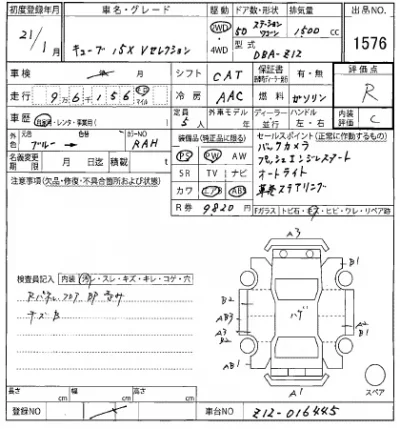 初度登録年月 車名・グレード 駆動 ドア数・形状 排気量 出品NO
21/1月 キューブ 15X Vセレクション 2WD・4WD 5D ステーションワゴン 1500cc 1576
型式 DBA-Z12
車検 月 シフト CAT 保証書 有・無 評価点
走行 9万6千156 km マイル 冷房 AAC 燃料 ガソリン R
車歴 自家用・レンタ・事業用( ) 定員 5人 外車モデル 年 ディーラー 並行 ハンドル 左・右 内装評価 C
外色 元色 ブルー → 色替 カラーNO RAH
装備品(純正品に限る) セールスポイント(正常に作動するもの)
名義変更期限 月 日迄 積載 t
PS PW AW
バックカメラ
プッシュエンジンスタート
注意事項(欠品・修復・不具合箇所および状態)
SR TV ナビ
オートライト
カワ エアB ABS
革巻ステアリング
R券 9820円
Fガラス トビ石・キズ・ヒビ・ワレ・リペア跡
A3
検査員記入 内装(汚レ・スレ・キズ・キレ・コゲ・穴)
B1
B2
AB3
A3
ハゲ
A2
B1
AB1
A1
スペア
長さ cm 幅 cm 高さ cm
登録NO 車台NO Z12-016445